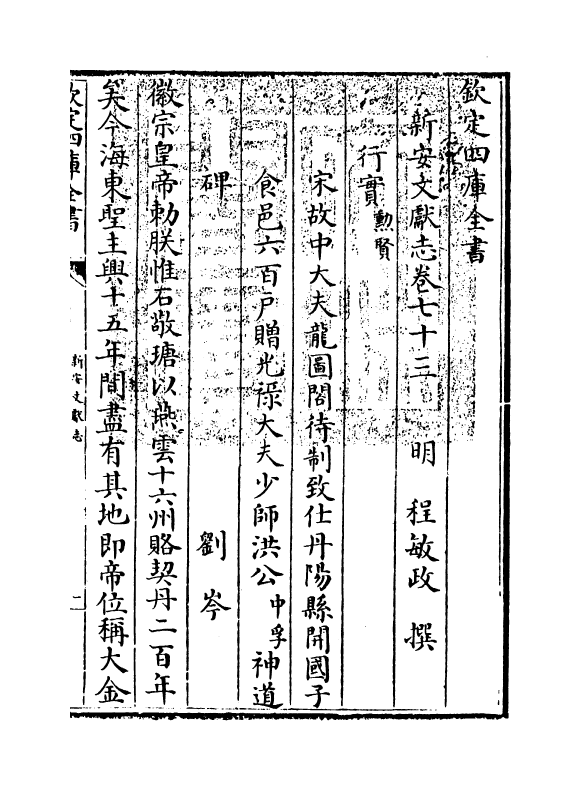 欽定四庫全書
新安文獻志卷七十三 明 程敏政 撰
行實勲賢
宋故中大夫龍圖閣待制致仕丹陽縣開國子
食邑六百户贈光祿大夫少師洪公中孚神道
碑 劉岑
徽宗皇帝勅朕惟石敬瑭以燕雲十六州賂契丹二百年
矣今海東聖主興十五年間盡有其地即帝位稱大金
欽定四庫全書
新安文獻志